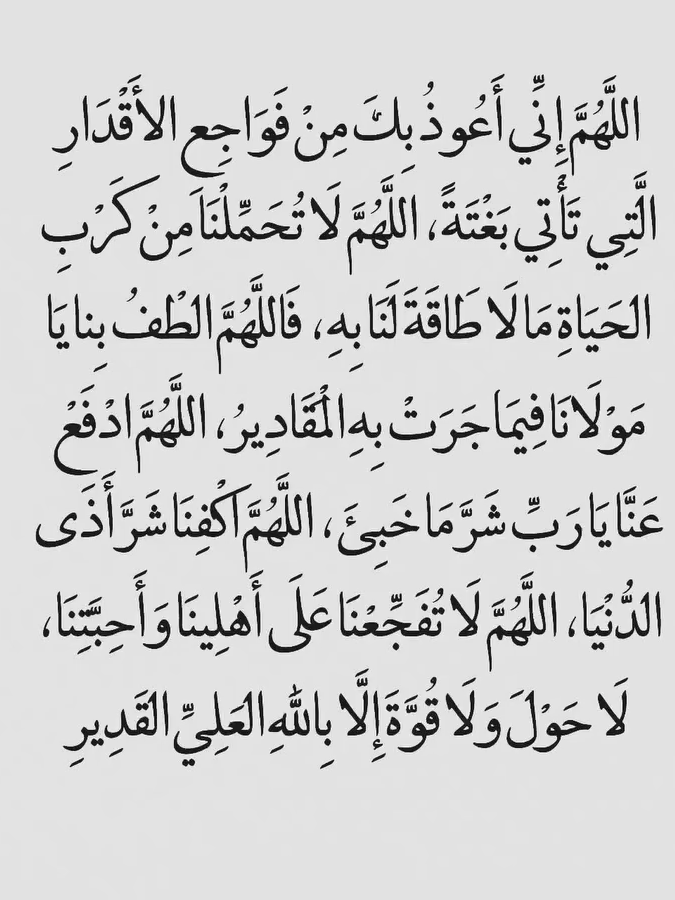 اللَّهُمَّ إِنِّي أَعُوذُ بِكَ مِنْ فَوَاجِعِ الأَقْدَارِ
الَّتِي تَأْتِي بَغْتَةً، اللَّهُمَّ لَا تُحَمِّلْنَا مِنْ كَرْبِ
الحَيَاةِ مَا لَا طَاقَةَ لَنَا بِهِ، فَاللَّهُمَّ الطْفُ بِنا يَا
مَوْلَانَا فِيمَا جَرَتْ بِهِ الْمَقَادِيرُ، اللَّهُمَّ ادْفَعْ
عَنَّا يَا رَبِّ شَرَّ مَا خَبِئَ، اللَّهُمَّ اكْفِنَا شَرَّ أَذَى
الدُّنْيَا، اللَّهُمَّ لَا تُفَجِّعْنَا عَلَى أَهْلِينَا وَأَحِبَّتِنَا،
لَا حَوْلَ وَلَا قُوَّةَ إِلَّا بِاللَّهِ العَلِيِّ القَدِيرِ